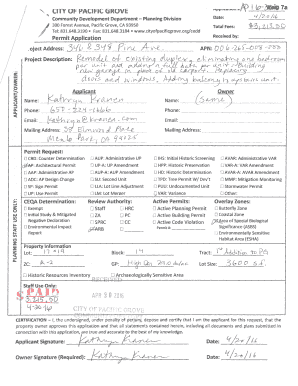 CITY OF PACIFIC GROVE
Community Development Department – Planning Division
300 Forest Avenue, Pacific Grove, CA 93950
Permit Application
Date: 4/20/16
Total Fees:
Received by:
Project Address: 346 & 348 Pine Ave. APN:
Project Description: Remodel of existing duplex, eliminating one bedroom
per unit and adding a half bath per unit. Rebuilding
new garage in place of old carport. Replacing
doors and windows.
APPLICANT/OWNER:
Applicant
Owner
Name: Kathryn Kranen
Name: (same)
Phone:
Phone:
Email:
Email:
Mailing Address:
Mailing Address:
Menlo Park, CA 94025
PLANNING STAFF USE ONLY:
Permit Request:
CRD: Counter Determination
AP: Architectural Permit
AAP: Administrative AP
ADC: AP Design Change
SP: Sign Permit
UP: Use Permit
AUP: Administrative UP
UP-A: UP Amendment
AUP-A: AUP Amendment
SU: Second Unit
LLA: Lot Line Adjustment
LM: Lot Merger
IHS: Initial Historic Screening
HPP: Historic Preservation
HD: Historic Determination
TPD: Tree Permit W/ Dev't
PUU: Undocumented Unit
VAR: Variance
AVAR: Administrative VAR
VAR-A: VAR Amendment
AVAR-A: AVAR Amendment
MMP: Mitigation Monitoring
Stormwater Permit
Other:
CEQA Determination:
Exempt
Initial Study & Mitigated
Negative Declaration
Environmental Impact
Report
Review Authority:
Staff
HRC
ZA
PC
SPRC
CC
ARB
Active Permits:
Active Planning Permit
Active Building Permit
Active Code Violation
Permit #:
Overlay Zones:
Butterfly Zone
Coastal Zone
Area of Special Biological
Significance (ASBS)
Environmentally Sensitive
Habitat Area (ESHA)
Property Information
Lot: 17 + 19
Block: 19
Tract: 1st Addition to PG
ZC: R-2
GP:
Lot Size: 3600 s.f.
Historic Resources Inventory
Archaeologically Sensitive Area
Staff Use Only:
PAID
4-20-16
RECEIVED
APR 20 2016
CITY OF PACIFIC GROVE
CERTIFICATION – I, the undersigned, under penalty of perjury, depose and certify that I am the applicant for this request, that the
property owner approves this application and that all statements contained herein, including all documents and plans submitted in
connection with this application, are true and accurate to the best of my knowledge.
Applicant Signature: Kathryn Kranen Date: 4/20/16
Owner Signature (Required): Kathryn Kranen Date: 4/20/16